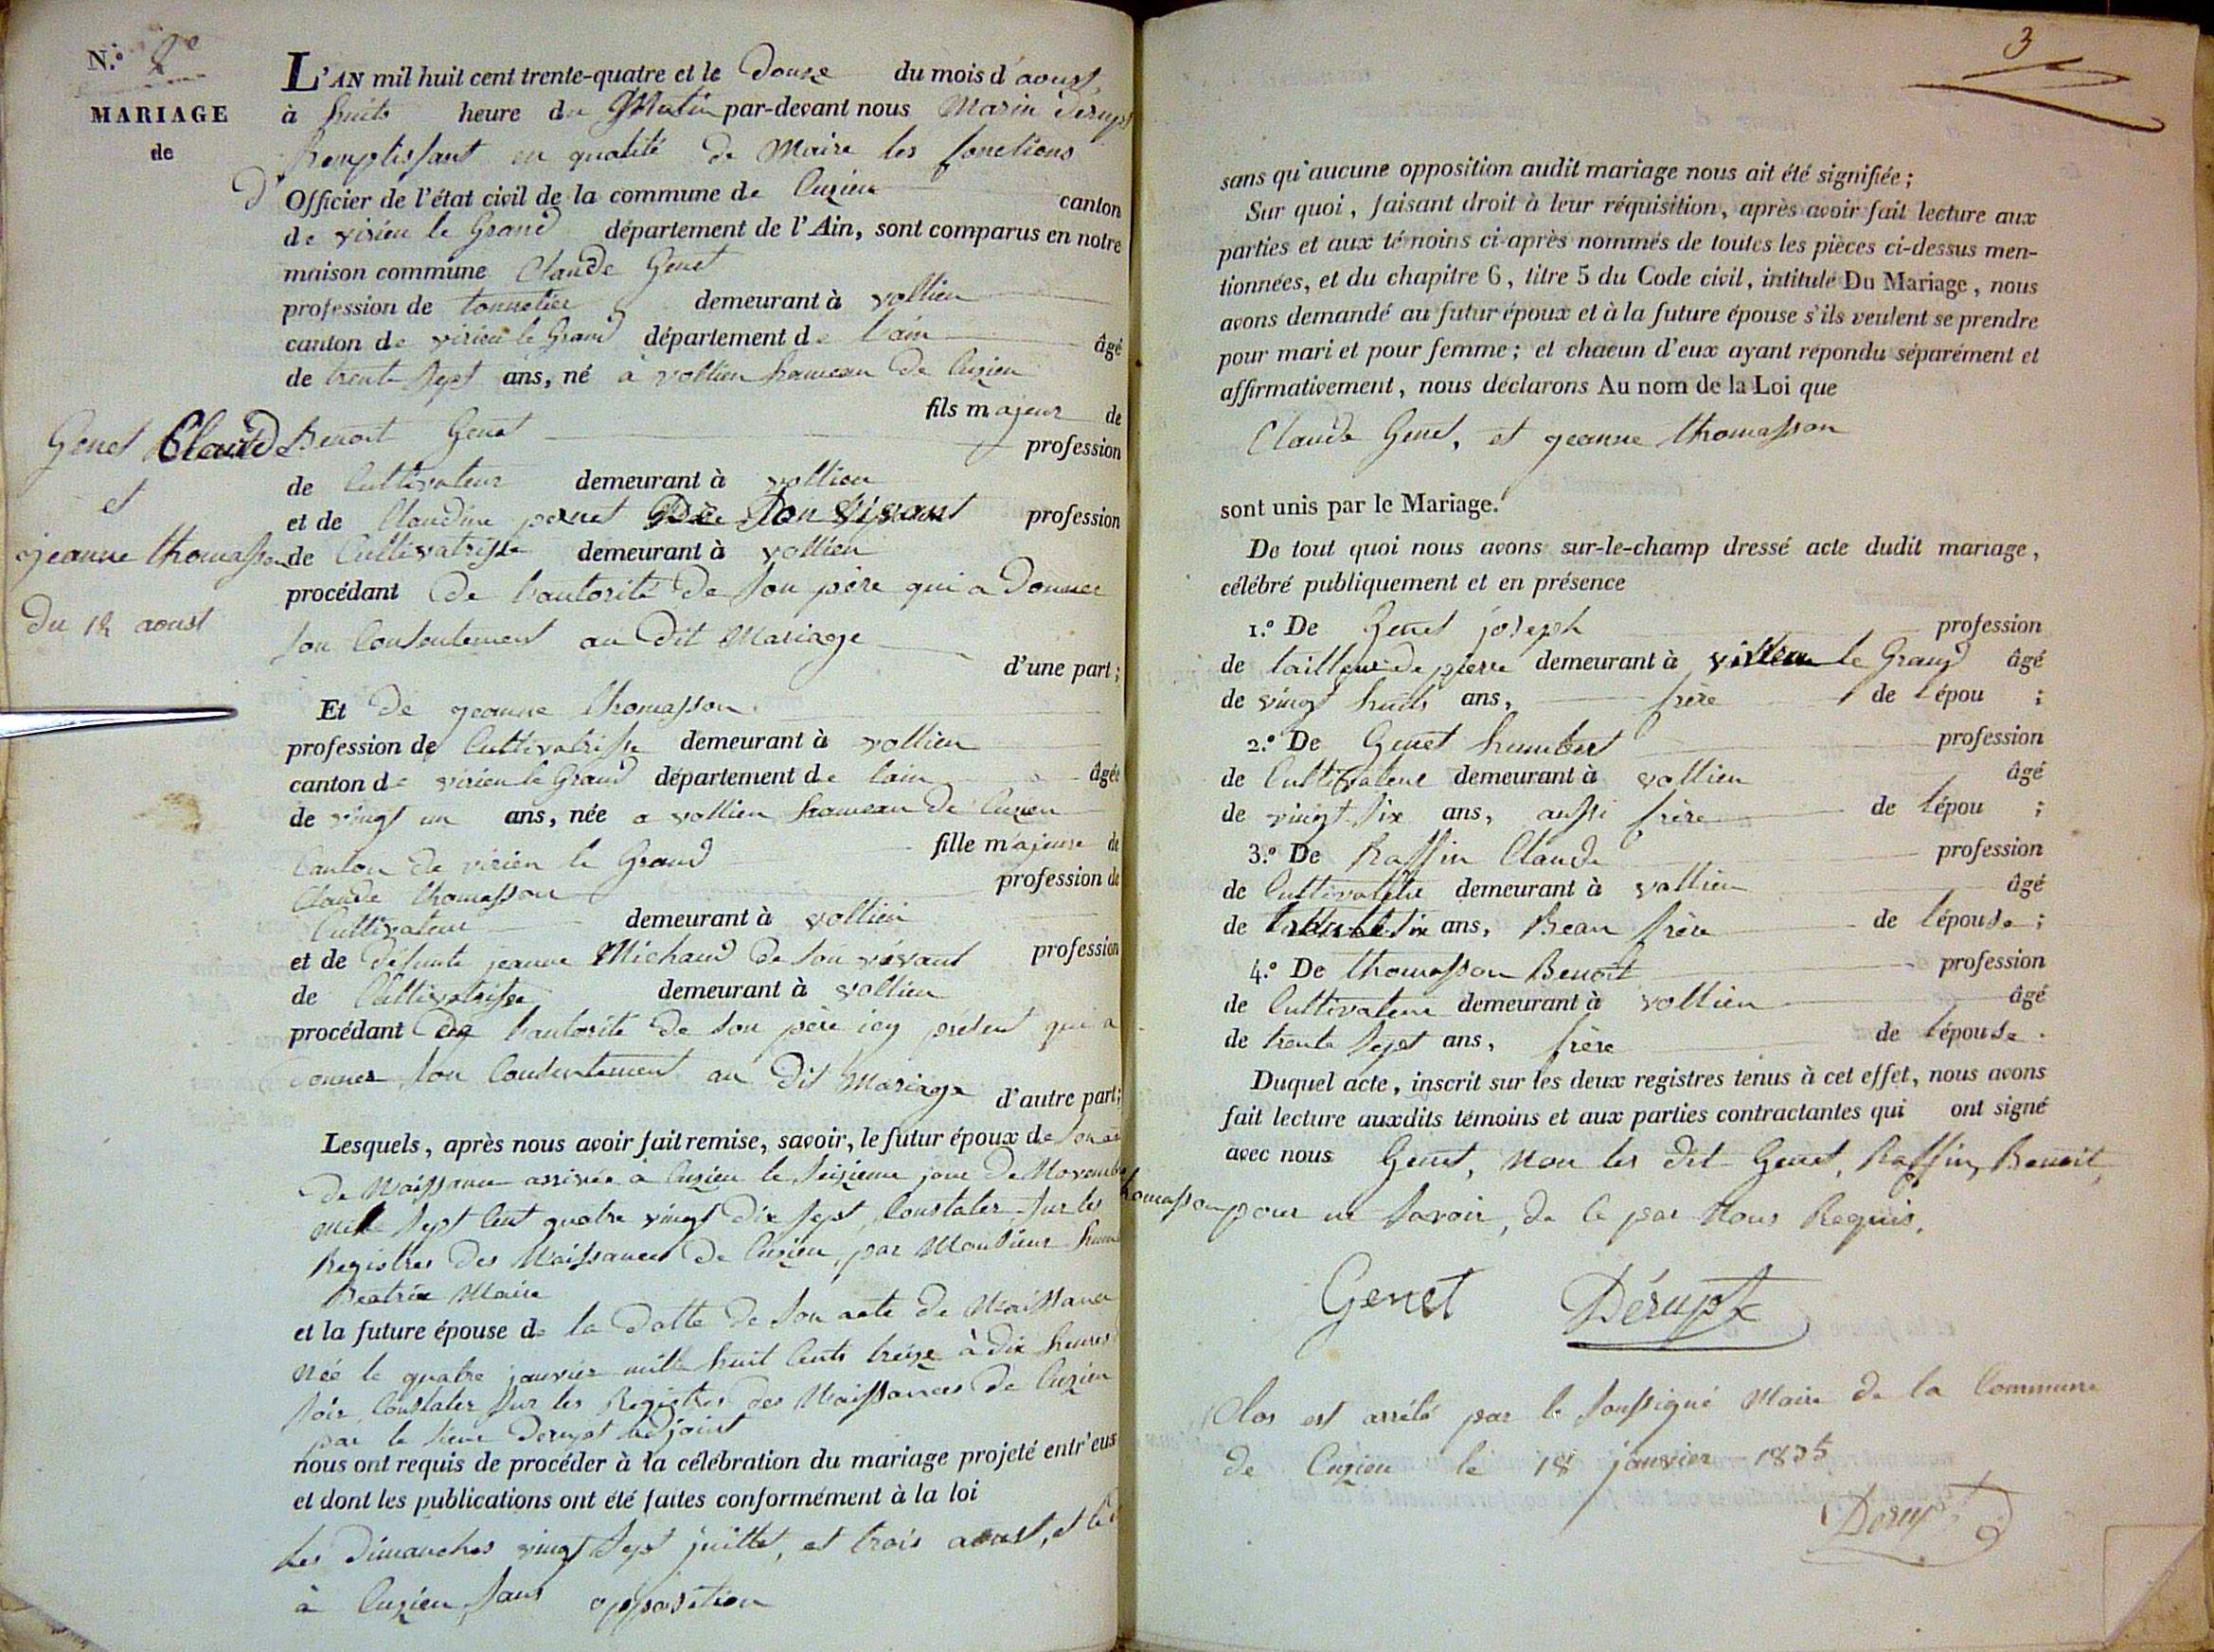 N.o 8e
MARIAGE
de
Genet Claude
et
jeanne thomasson
Du 12 aoust
L'AN mil huit cent trente-quatre et le Douze du mois d'aoust,
à huits heure du Matin par-devant nous Marin Derupt
Remplissant en qualité de Maire les fonctions
d' Officier de l'état civil de la commune de Cuzieu canton
de virieu le Grand département de l'Ain, sont comparus en notre
maison commune Claude Genet
profession de tonnelier demeurant à vollien
canton de virieu le Grand département de l'ain âgé
de trente sept ans, né à vollien hameau de Cuzieu
fils majeur de
Benoit Genet profession
de Cultivateur demeurant à vollien
et de Claudine pernet De Son vivant profession
de Cultivatrisse demeurant à vollien
procédant de l'autorité de Son père qui a Donner
Son Consentement au Dit Mariage
d'une part;
Et de jeanne thomasson
profession de Cultivatrisse demeurant à vollien
canton de virieu le Grand département de lain âgée
de vingt un ans, née a vollien hameau de Cuzieu
Canton de virieu le Grand fille majeure de
Claude thomasson profession de
Cultivateur demeurant à vollien
et de défunte jeanne Michaud de Son vivant profession
de Cultivatrisse demeurant à vollien
procédant de l'autorité de Son père icy présent qui a
Donner Son Consentement au Dit Mariage d'autre part;
Lesquels, après nous avoir fait remise, savoir, le futur époux de Son
de Naissance arrivée à Cuzieu le Seizieme jour de Novembre
mille Sept Cent quatre vingt Dix Sept, Constater Sur les
Registres des Naissances de Cuzieu, par Monsieur
Beatrix Maire
et la future épouse de la Datte de Son acte de Naissance
Née le quatre janvier mille huit Cents treize à dix heures
Soir Constater Sur les Registres des Naissances de Cuzieu
par le Sieur Derupt adjoint
nous ont requis de procéder à la célébration du mariage projeté entr'eux
et dont les publications ont été faites conformément à la loi
Les Dimanches vingt Sept juillet, et trois aoust, et
à Cuzieu Sans opposition
3
sans qu'aucune opposition audit mariage nous ait été signifiée;
Sur quoi, faisant droit à leur réquisition, après avoir fait lecture aux
parties et aux témoins ci-après nommés de toutes les pièces ci-dessus men-
tionnées, et du chapitre 6, titre 5 du Code civil, intitulé Du Mariage, nous
avons demandé au futur époux et à la future épouse s'ils veulent se prendre
pour mari et pour femme; et chacun d'eux ayant répondu séparément et
affirmativement, nous déclarons Au nom de la Loi que
Claude Genet, et jeanne thomasson
sont unis par le Mariage.
De tout quoi nous avons sur-le-champ dressé acte dudit mariage,
célébré publiquement et en présence
1.o De Genet joseph profession
de tailleur de pierre demeurant à virieu le Grand âgé
de vingt huits ans, frère de l'épou ;
2.o De Genet humbert profession
de Cultivateur demeurant à vollien âgé
de vingt Six ans, aussi frère de l'épou ;
3.o De Raffin Claude profession
de Cultivateur demeurant à vollien âgé
de trente Six ans, Beau frère de l'épouse ;
4.o De thomasson Benoit profession
de Cultivateur demeurant à vollien âgé
de trente Sept ans, frère de l'épouse .
Duquel acte, inscrit sur les deux registres tenus à cet effet, nous avons
fait lecture auxdits témoins et aux parties contractantes qui ont signé
avec nous Genet, Non les dit Genet, Raffin, Benoit,
thomasson pour ne Savoir, de Ce par Nous Requis.
Genet Dérupt
Clos est arrêté par le Soussigné Maire de la Commune
de Cuzieu le 18 janvier 1835
Derupt